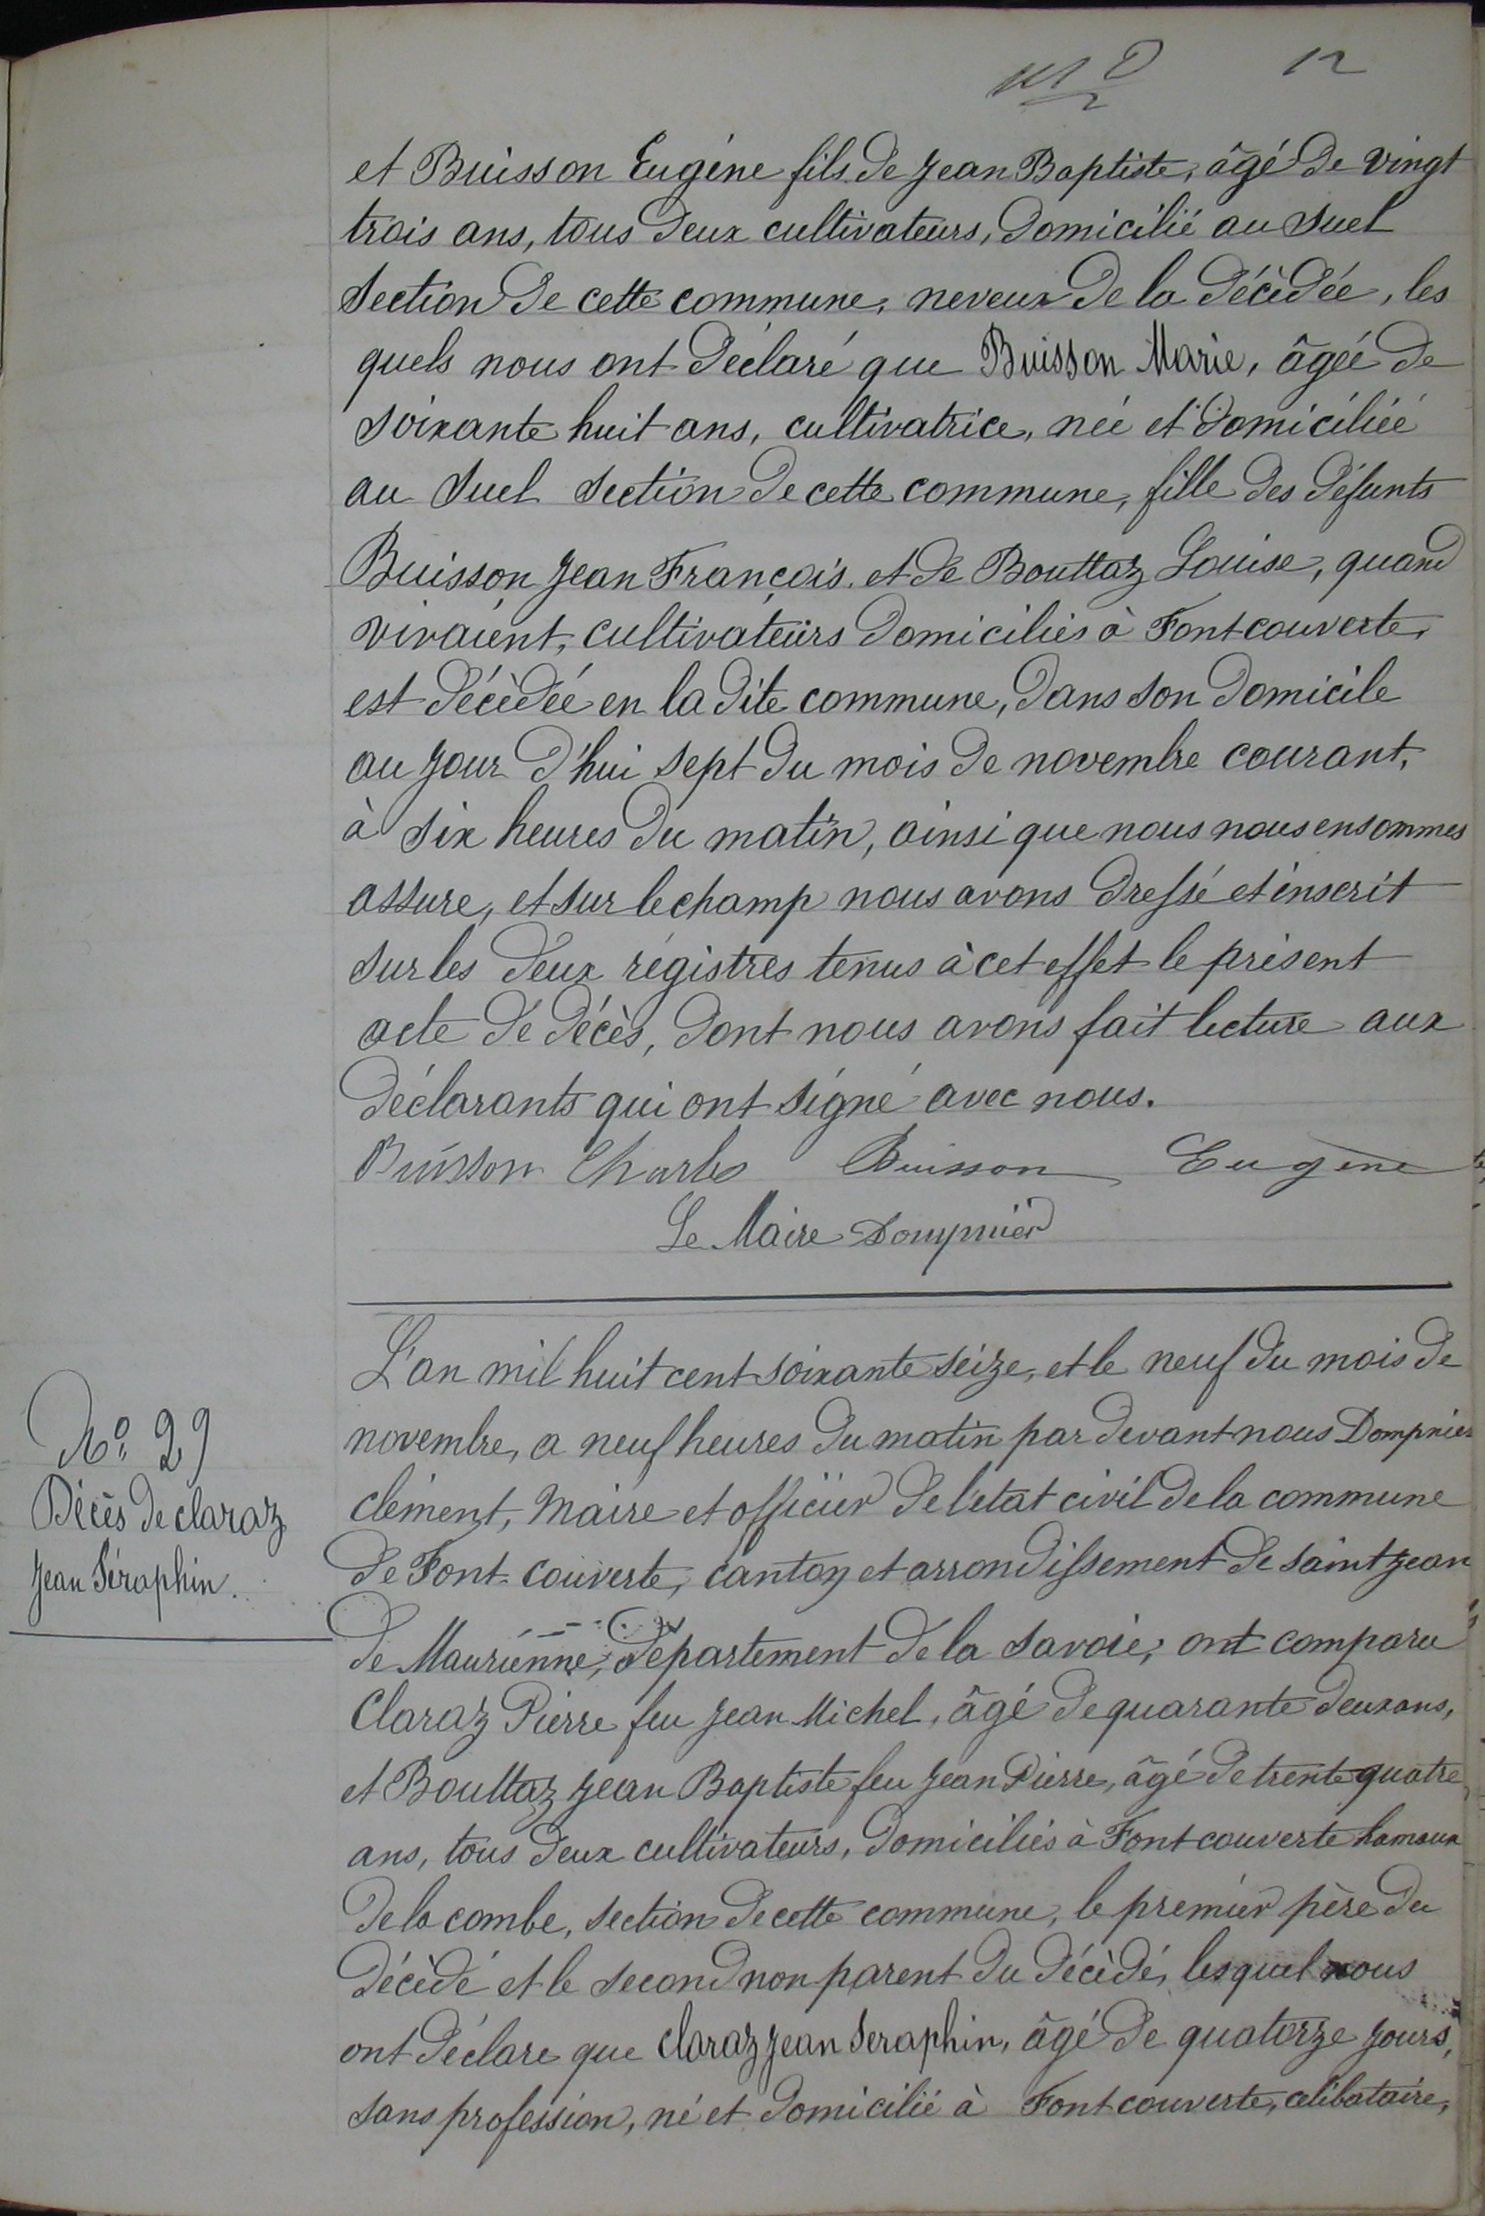 12
et Buisson Eugène fils de Jean Baptiste, âgé de vingt
trois ans, tous deux cultivateurs, domicilié au Suel
section de cette commune, neveux de la décèdée, les
quels nous ont déclaré que Buisson Marie, âgée de
soixante huit ans, cultivatrice, née et domiciliée
au Suel section de cette commune, fille des défunts
Buisson Jean François et de Bouttaz Louise, quand
vivaient, cultivateurs domiciliés à Fontcouverte,
est décèdée en la dite commune, dans son domicile
au jour d'hui sept du mois de novembre courant,
à six heures du matin, ainsi que nous nous en sommes
assure, et sur le champ nous avons dressé et inscrit
sur les deux régistres tenus à cet effet le présent
acte de décès, dont nous avons fait lecture aux
déclarants qui ont signé avec nous.
Buisson Charles Buisson Eugène
Le Maire Dompnier
N° 29
Décès de Claraz
Jean Séraphin.
L'an mil huit cent soixante seize, et le neuf du mois de
novembre, a neuf heures du matin par devant nous Dompnier
clément, Maire et officier de l'etat civil de la commune
de Font-couverte, canton et arrondissement de Saint Jean
de Maurienne, département de la Savoie, ont comparu
Claraz Pierre feu Jean Michel, âgé de quarante deux ans,
et Bouttaz Jean Baptiste feu Jean Pierre, âgé de trente quatre
ans, tous deux cultivateurs, domiciliés à Fontcouverte hamaux
de la combe, section de cette commune, le premier père du
décèdé et le second non parent du décèdé, lesquel nous
ont déclare que Claraz Jean Seraphin, âgé de quatorze jours,
sans profession, né et domicilié à Fontcouverte, celibataire,